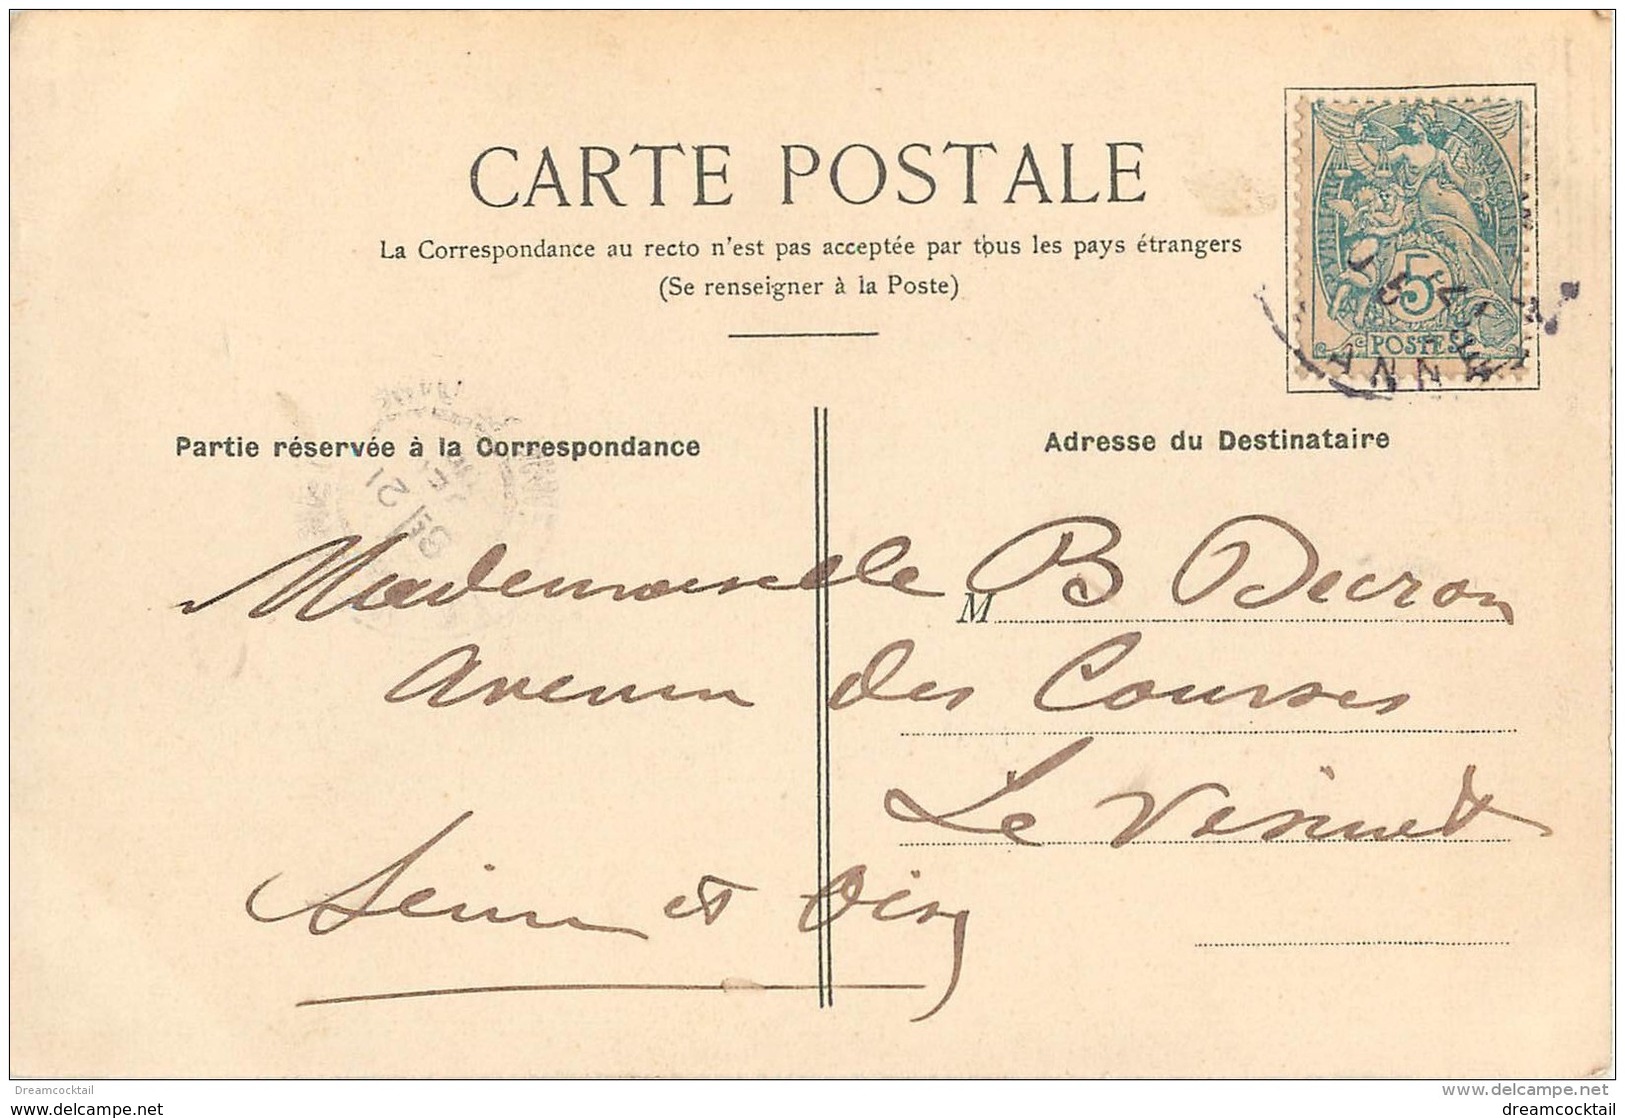 CARTE POSTALE
La Correspondance au recto n'est pas acceptée par tous les pays étrangers
(Se renseigner à la Poste)
REPUBLIQUE FRANÇAISE
5
POSTES
ANN
Partie réservée à la Correspondance
Adresse du Destinataire
21
Mademoiselle M B Decron
Avenue des Courses
Le Vésinet
Seine et Oise
Dreamcocktail
www.delcampe.net
www.delcampe.net
dreamcocktail